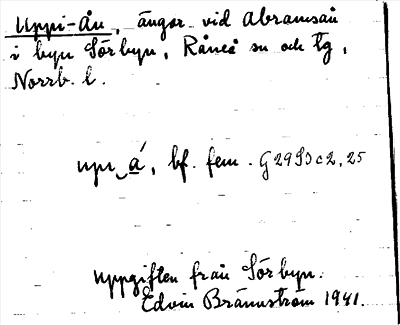 Uppi-Ån, ängar vid Abramsån
i byn Sörbyn, Råneå sn och tg,
Norrb. l.
upı‿á, bf. fem. G29S3c2,25
Uppgiften från Sörbyn.
Edvin Brännström 1941.